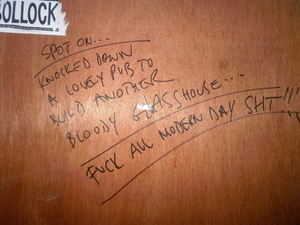 BOLLOCK
SPOT ON...
KNOCKED DOWN
A LOVELY PUB TO
BUILD ANOTHER
BLOODY GLASSHOUSE....
FUCK ALL MODERN DAY SHIT!!!